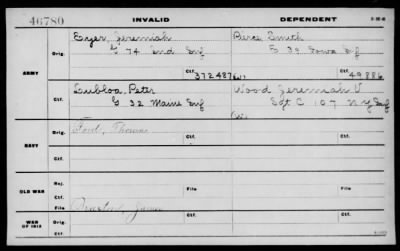 46780 INVALID DEPENDENT
ARMY Orig. Eyer, Jeremiah Pierce, Smith
G 74 Ind Inf E 39 Iowa Inf
Ctf. 372487 Ctf. 49886
Ctf. Lubloa, Peter Wood Jeremiah V
G 32 Maine Inf Sgt C 107 N.Y Inf
NAVY Orig. Ford, Thomas
Ctf. Ctf.
OLD WAR Rej. Ctf. File File
WAR OF 1812 Orig. James
Ctf. Ctf.